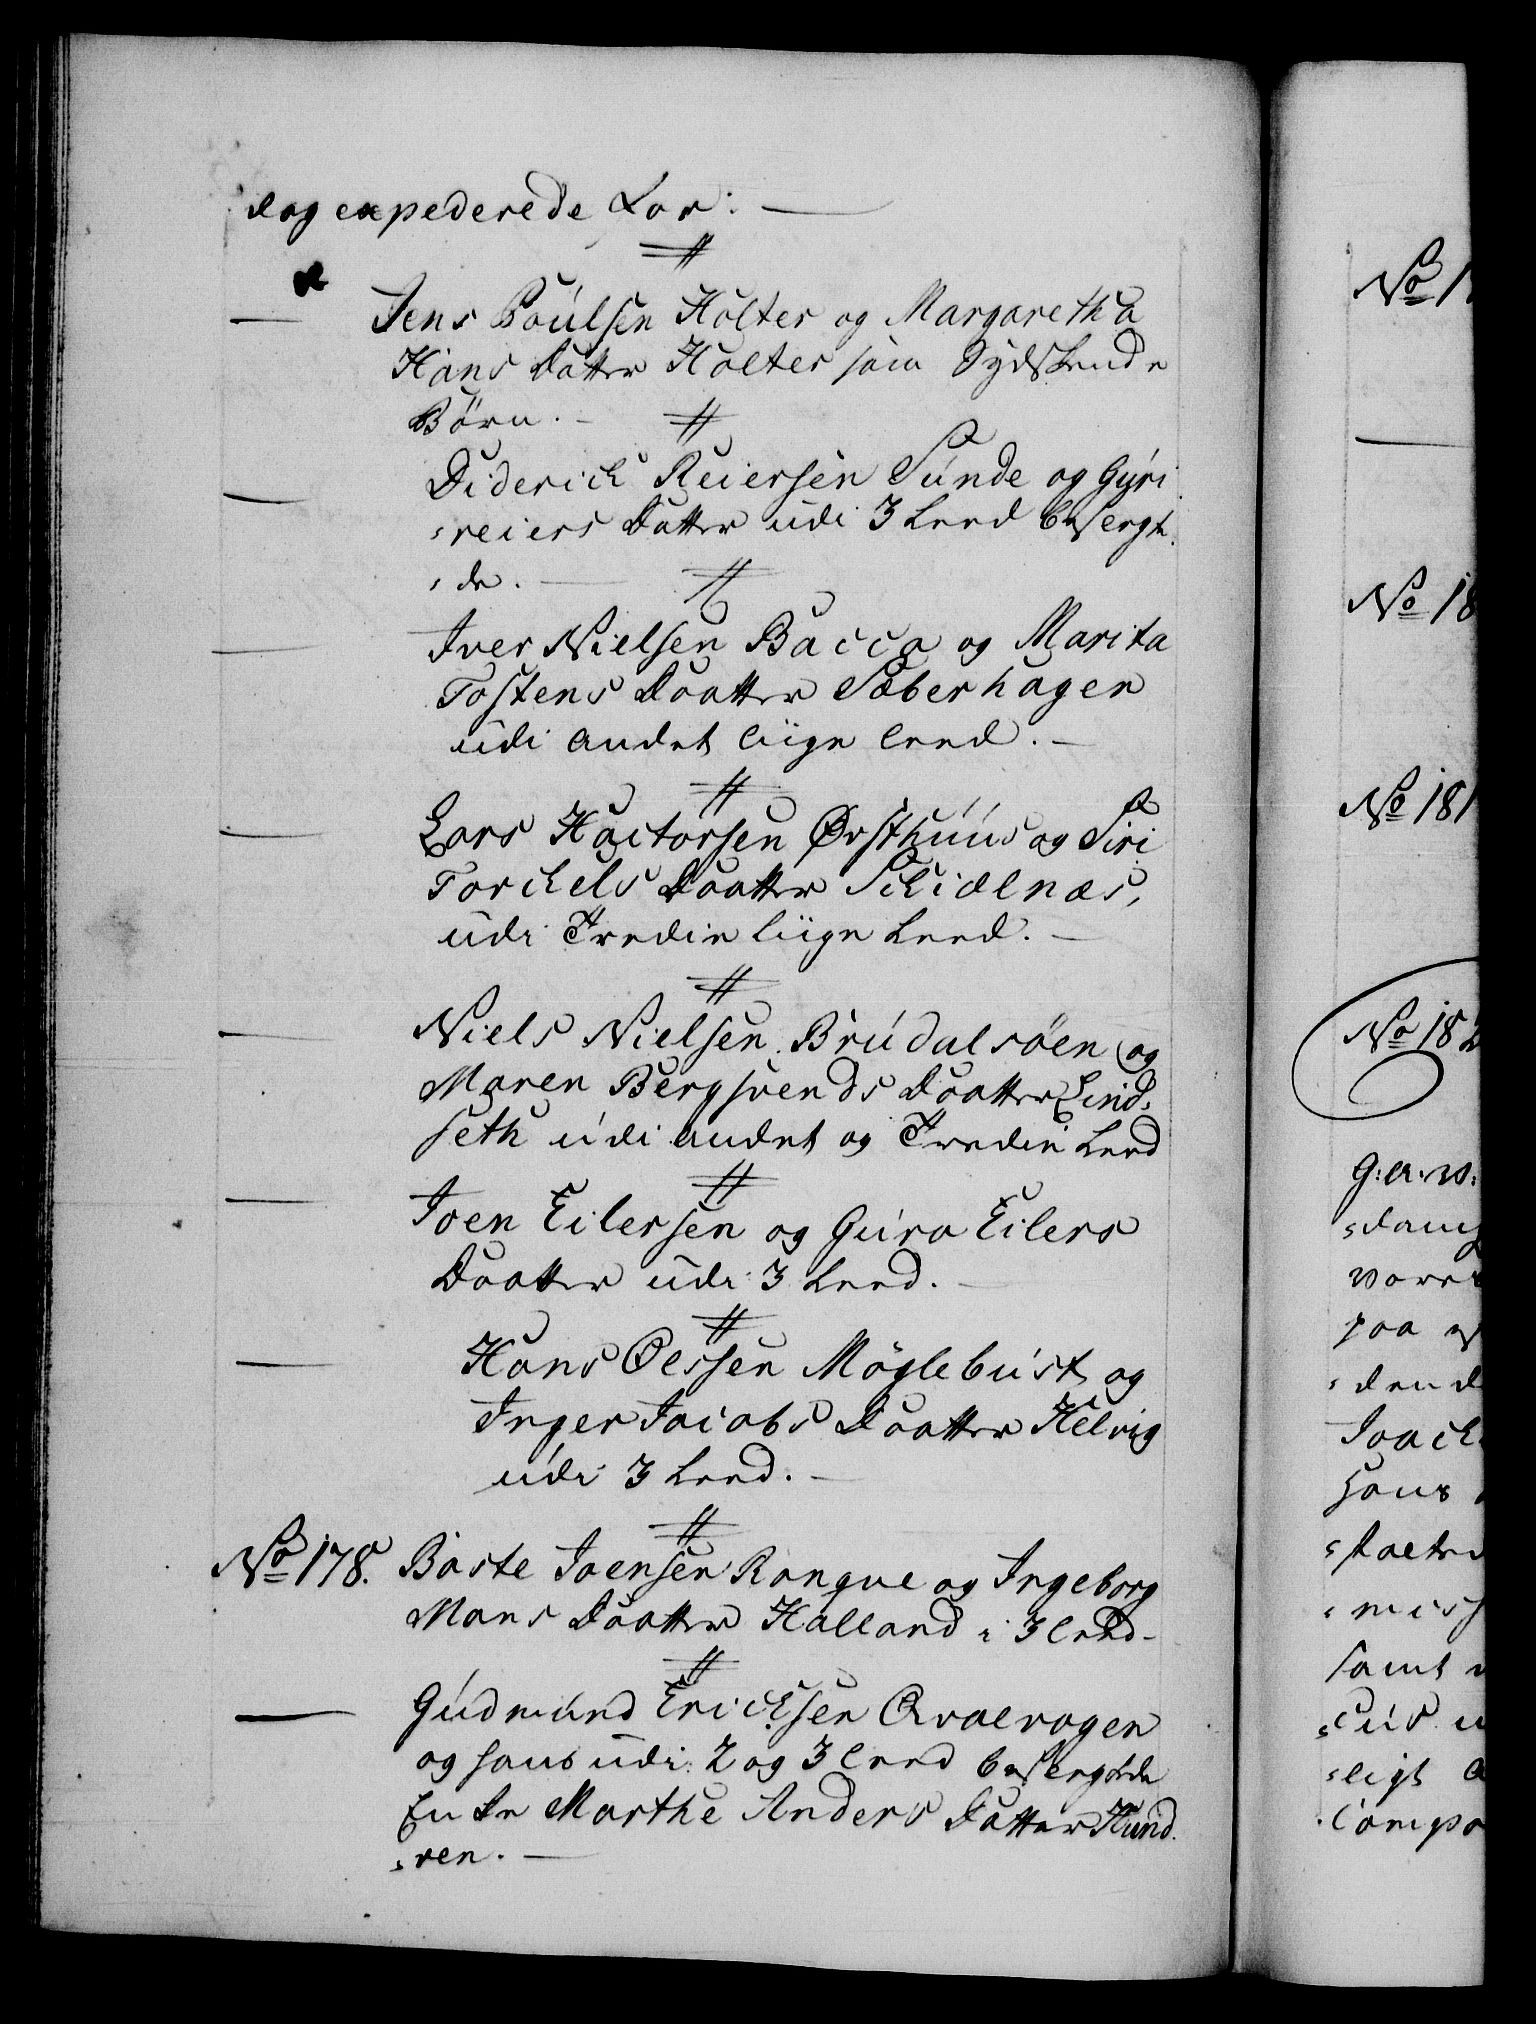 dag expederede for:
Jens Poulsen Holter og Margaretha
Hans Datter Holter som Sydskende
Börn.
Diderich Reiersen Sunde og Gyri
reiers Datter udi 3 Leed besvogt
de.
Iver Nielsen Bacca og Marita
Tostens Daatter Sæberhagen
udi andet liige Leed.
Lars Hactorsen Ørsthuus og Siri
Torchels Daatter Schielnæs,
udi Tredie liige Leed.
Niels Nielsen Brudalsöen og
Maren Bergsvends Daatter Lind-
seth udi andet og Tredie Leed
Joen Eilersen og Guro Eilers
Daatter udi 3 Leed.
Hans Olssen Möglebust og
Inger Jacobs Daatter Helvig
udi 3 Leed.
No 178. Baste Joensen Rongve og Ingeborg
Mons Daatter Halland i 3 Leed
Gudmund Ericksen Qvalvogen
og hans udi 2 og 3 Leed besvogrede
Enke Marthe Anders Datter Hund
ren.
No 1
No 18
No 181
No 182
G: A: W:
dang
vores
paa
Joach
hans
miss
samt
ligt
Compa